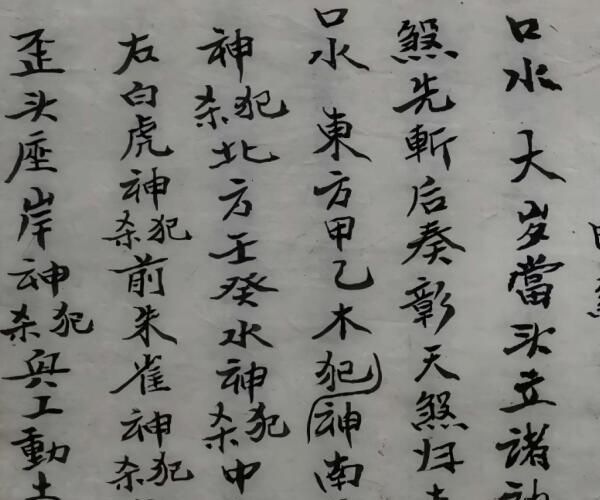 口水 大岁當头立諸
煞先斬后奏彰天煞归
口水 東方甲乙木犯神南
神犯杀北方壬癸水神犯杀中
右白虎神犯杀前朱雀神犯杀
歪头座岸神犯杀興工動土